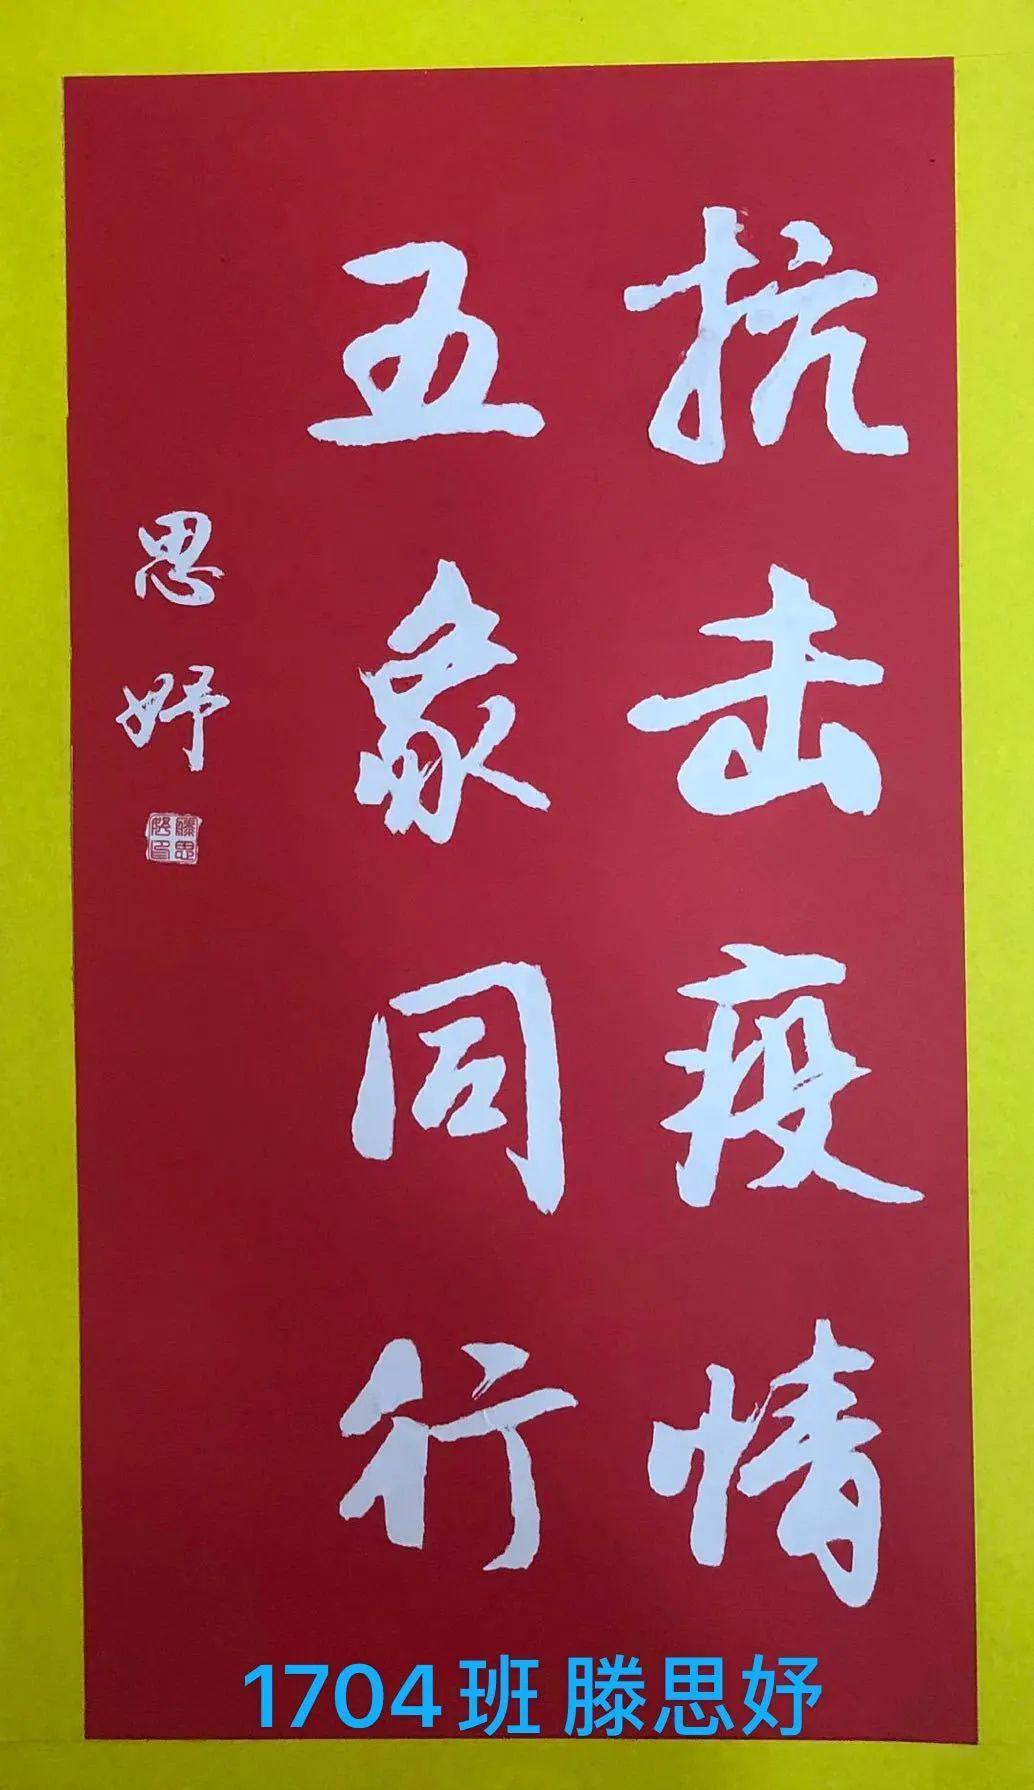 抗击疫情
五象同行
思妤
滕思
妤印
1704班 滕思妤